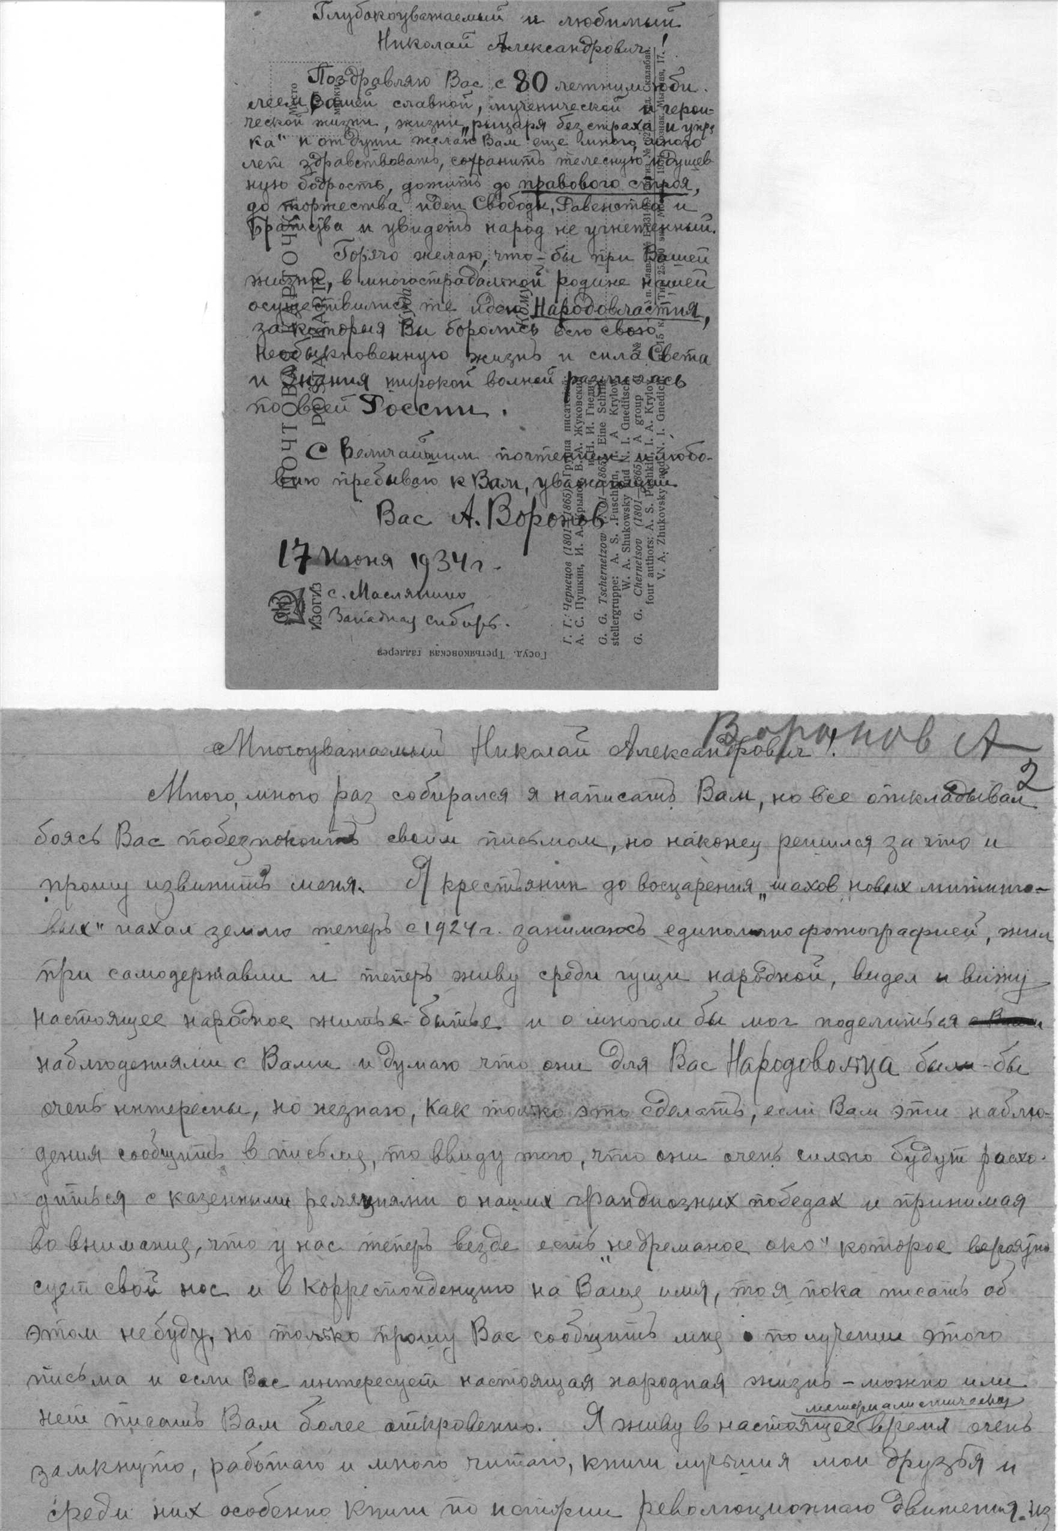 Глубокоуважаемый и любимый
Николай Александрович!
Поздравляю Вас с 80 летним юби-
леем Вашей славной, мученической и герои-
ческой жизни, жизни „рыцаря без страха и упре-
ка" и от души желаю Вам еще много, много
лет здравствовать, сохранить телесную и душев-
ную бодрость, дожить до правового строя,
до торжества идеи Свободы, Равенства и
Братства и увидеть народ не угнетенный.
Горячо желаю, что-бы при Вашей
жизни, в многострадальной родине нашей
осуществились те идеи Народовластия,
за которыя Вы боролись всю свою
необыкновенную жизнь и сила Света
и Знания широкой волной разлилась
по всей России.
С величайшим почтением и любо-
вию пребываю к Вам, уважающий
Вас А. Воронов
17 Июня 1934 г.
с. Маслянино
Западная Сибирь.
ПОЧТОВАЯ КАРТОЧКА
ИЗОГИЗ
Госуд. Третьяковская галлерея
Г. Г. Чернецов (1801—1865). Группа писателей:
А. С. Пушкин, И. А. Крылов, В. А. Жуковский
и Н. И. Гнедич
G. G. Tschernetzow (1801—1865). Eine Schrift-
stellergruppe: A. S. Puschkin, I. A. Krylow,
W. A. Shukowsky und N. I. Gneditsch
G. G. Chernetsov (1801—1865). A group of
four authors: A. S. Pushkin, I. A. Krylov,
V. A. Zhukovsky and N. I. Gnedich
Воронов А
2
Многоуважаемый Николай Александрович!
Много, много раз собирался я написать Вам, но все откладывал
боясь Вас побезпокоить своим письмом, но наконец решился за что и
прошу извинить меня. Я крестьянин до восцарения „шахов новых
" пахал землю теперь с 1924 г. занимаюсь единолично фотографией, жил
при самодержавии и теперь живу среди гущи народной, видел и вижу
настоящее народное житье-бытье и о многом бы мог поделиться
наблюдениями с Вами и думаю что они для Вас Народовольца были-бы
очень интересны, но незнаю, как только это сделать, если Вам эти наблю-
дения сообщить в письме, то ввиду того, что они очень сильно будут расхо-
диться с казенными реляциями о наших грандиозных победах и принимая
во внимание, что у нас теперь везде есть „недреманое око" которое вероятно
сует свой нос и в корреспонденцию на Ваше имя, то я пока писать об
этом небуду, но только прошу Вас сообщить мне о получении этого
письма и если Вас интересует настоящая народная жизнь – можно или
нет писать Вам более откровенно. Я живу в настоящее время материалистически очень
замкнуто, работаю и много читаю, книги лучшия мои друзья и
среди них особенно книги по истории революционнаго движения. Из